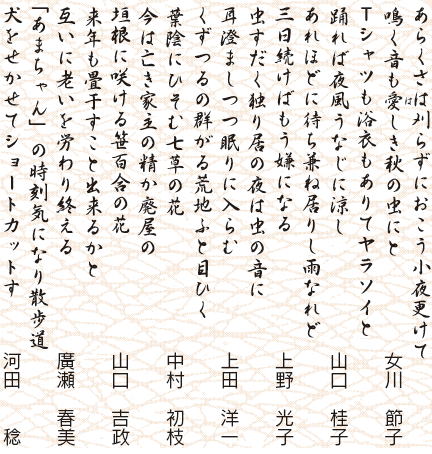 あらくさは刈らずにおこう小夜更けて
鳴く音も愛しき秋の虫にと
女川 節子
Tシャツも浴衣もありてヤラソイと
踊れば夜風うなじに涼し
山口 桂子
あれほどに待ち兼ね居りし雨なれど
三日続けばもう嫌になる
上野 光子
虫すだく独り居の夜は虫の音に
耳澄ましつつ眠りに入らむ
上田 洋一
くずつるの群がる荒地ふと目ひく
葉陰にひそむ七草の花
中村 初枝
今は亡き家主の精か廃屋の
垣根に咲ける笹百合の花
山口 吉政
来年も畳干すこと出来るかと
互いに老いを労わり終える
廣瀬 春美
「あまちゃん」の時刻気になり散歩道
犬をせかせてショートカットす
河田 稔